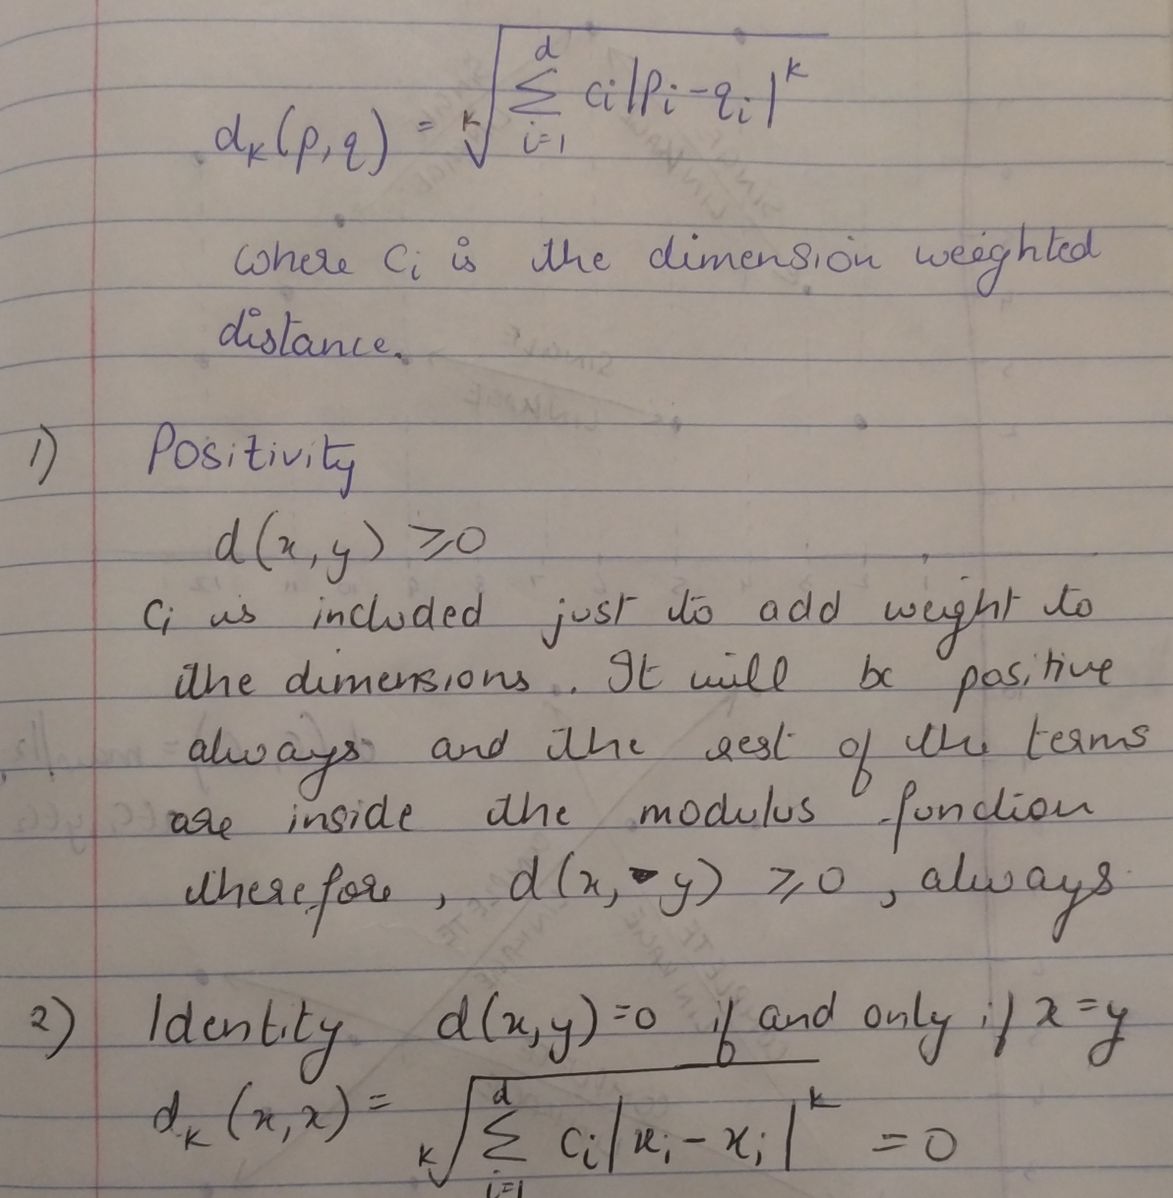 d_k(p,q) = ᵏ√(Σ_{i=1}^{d} c_i|p_i-q_i|^k)
where c_i is the dimension weighted
distance.
1) Positivity
d(x,y) ≥0
c_i is included just to add weight to
the dimensions. It will be positive
always and the rest of the terms
are inside the modulus function
therefore, d(x, y) ≥0, always
2) Identity d(x,y)=0 if and only if x=y
d_k(x,x) = ᵏ√(Σ_{i=1}^{d} c_i|x_i-x_i|^k) = 0